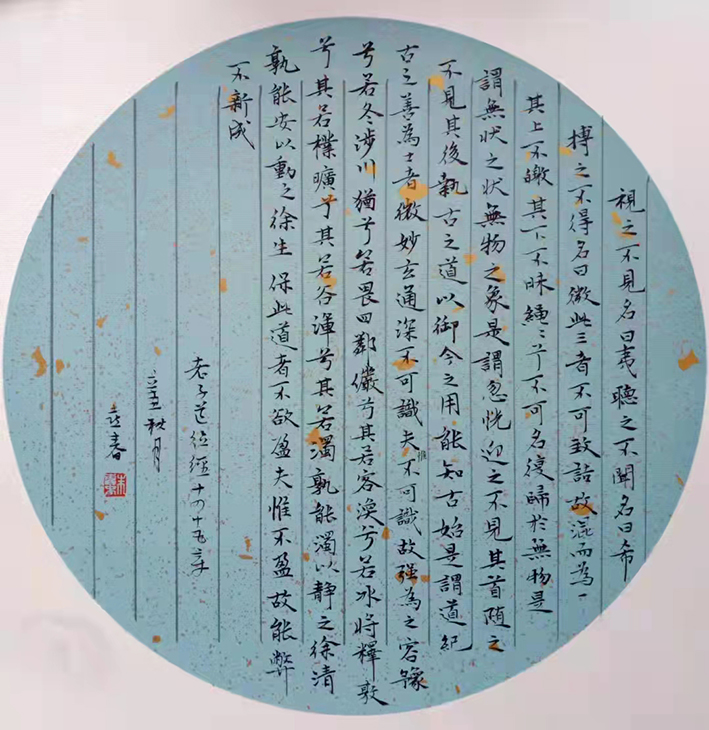 視之不見名曰夷聽之不聞名曰希
搏之不得名曰微此三者不可致詰故混而為一
其上不皦其下不昧繩〻兮不可名復歸於無物是
謂無状之状無物之象是謂忽恍迎之不見其首随之
不見其後執古之道以御今之用能知古始是謂道紀
古之善為士者微妙玄通深不可識夫惟不可識故强為之容豫
兮若冬涉川猶兮若畏四鄰儼兮其若容渙兮若冰將釋敦
兮其若樸曠兮其若谷渾兮其若濁孰能濁以静之徐清
孰能安以動之徐生保此道者不欲盈夫惟不盈故能弊
不新成
老子道德經十四十五章
辛丑秋月
春